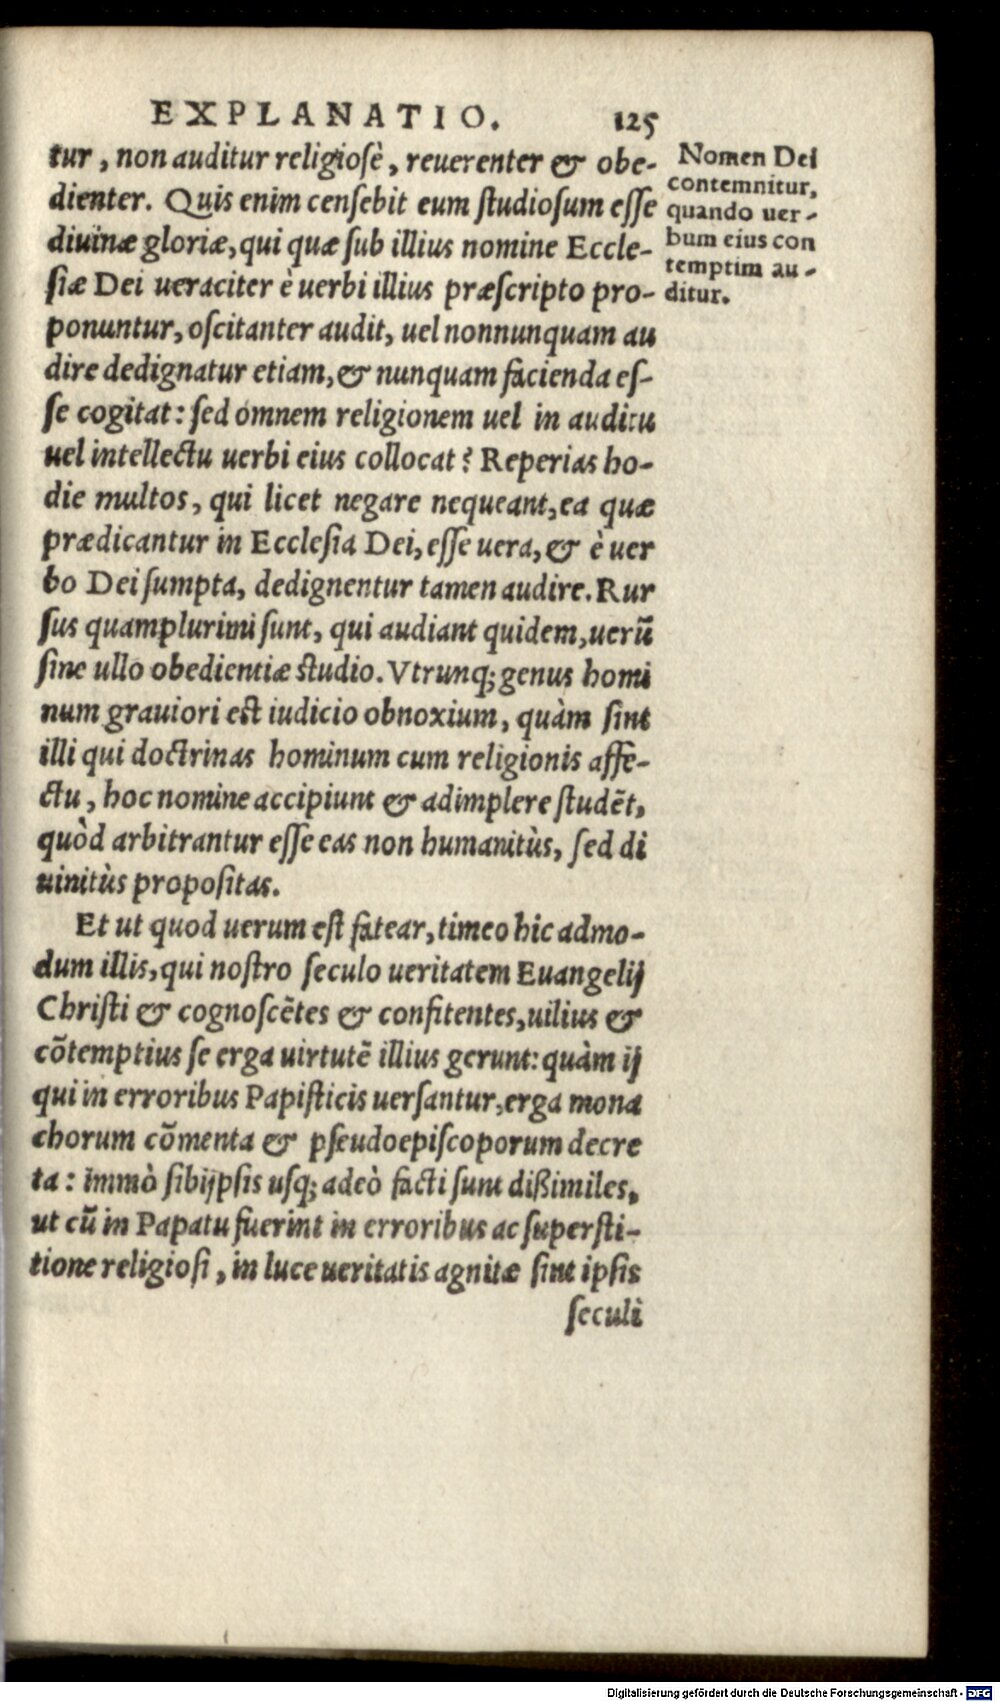 EXPLANATIO. 125
tur, non auditur religiosè, reuerenter & obe-
dienter. Quis enim censebit eum studiosum esse
diuinæ gloriæ, qui quæ sub illius nomine Eccle-
siæ Dei ueraciter è uerbi illius præscripto pro-
ponuntur, oscitanter audit, uel nonnunquam au
dire dedignatur etiam, & nunquam facienda es-
se cogitat: sed omnem religionem uel in auditu
uel intellectu uerbi eius collocat? Reperias ho-
die multos, qui licet negare nequeant, ea quæ
prædicantur in Ecclesia Dei, esse uera, & è uer
bo Dei sumpta, dedignentur tamen audire. Rur
sus quamplurimi sunt, qui audiant quidem, uerũ
sine ullo obedientiæ studio. Vtrunq; genus homi
num grauiori est iudicio obnoxium, quàm sint
illi qui doctrinas hominum cum religionis affe-
ctu, hoc nomine accipiunt & adimplere studẽt,
quòd arbitrantur esse eas non humanitùs, sed di
uinitùs propositas.
Et ut quod uerum est fatear, timeo hic admo-
dum illis, qui nostro seculo ueritatem Euangelij
Christi & cognoscẽtes & confitentes, uilius &
cõtemptius se erga uirtutẽ illius gerunt: quàm ij
qui in erroribus Papisticis uersantur, erga mona
chorum cõmenta & pseudoepiscoporum decre
ta: immò sibijpsis usq; adeò facti sunt dißimiles,
ut cũ in Papatu fuerint in erroribus ac supersti-
tione religiosi, in luce ueritatis agnitæ sint ipsis
seculi
Nomen Dei
contemnitur,
quando uer-
bum eius con
temptim au-
ditur.
Digitalisierung gefördert durch die Deutsche Forschungsgemeinschaft - DFG